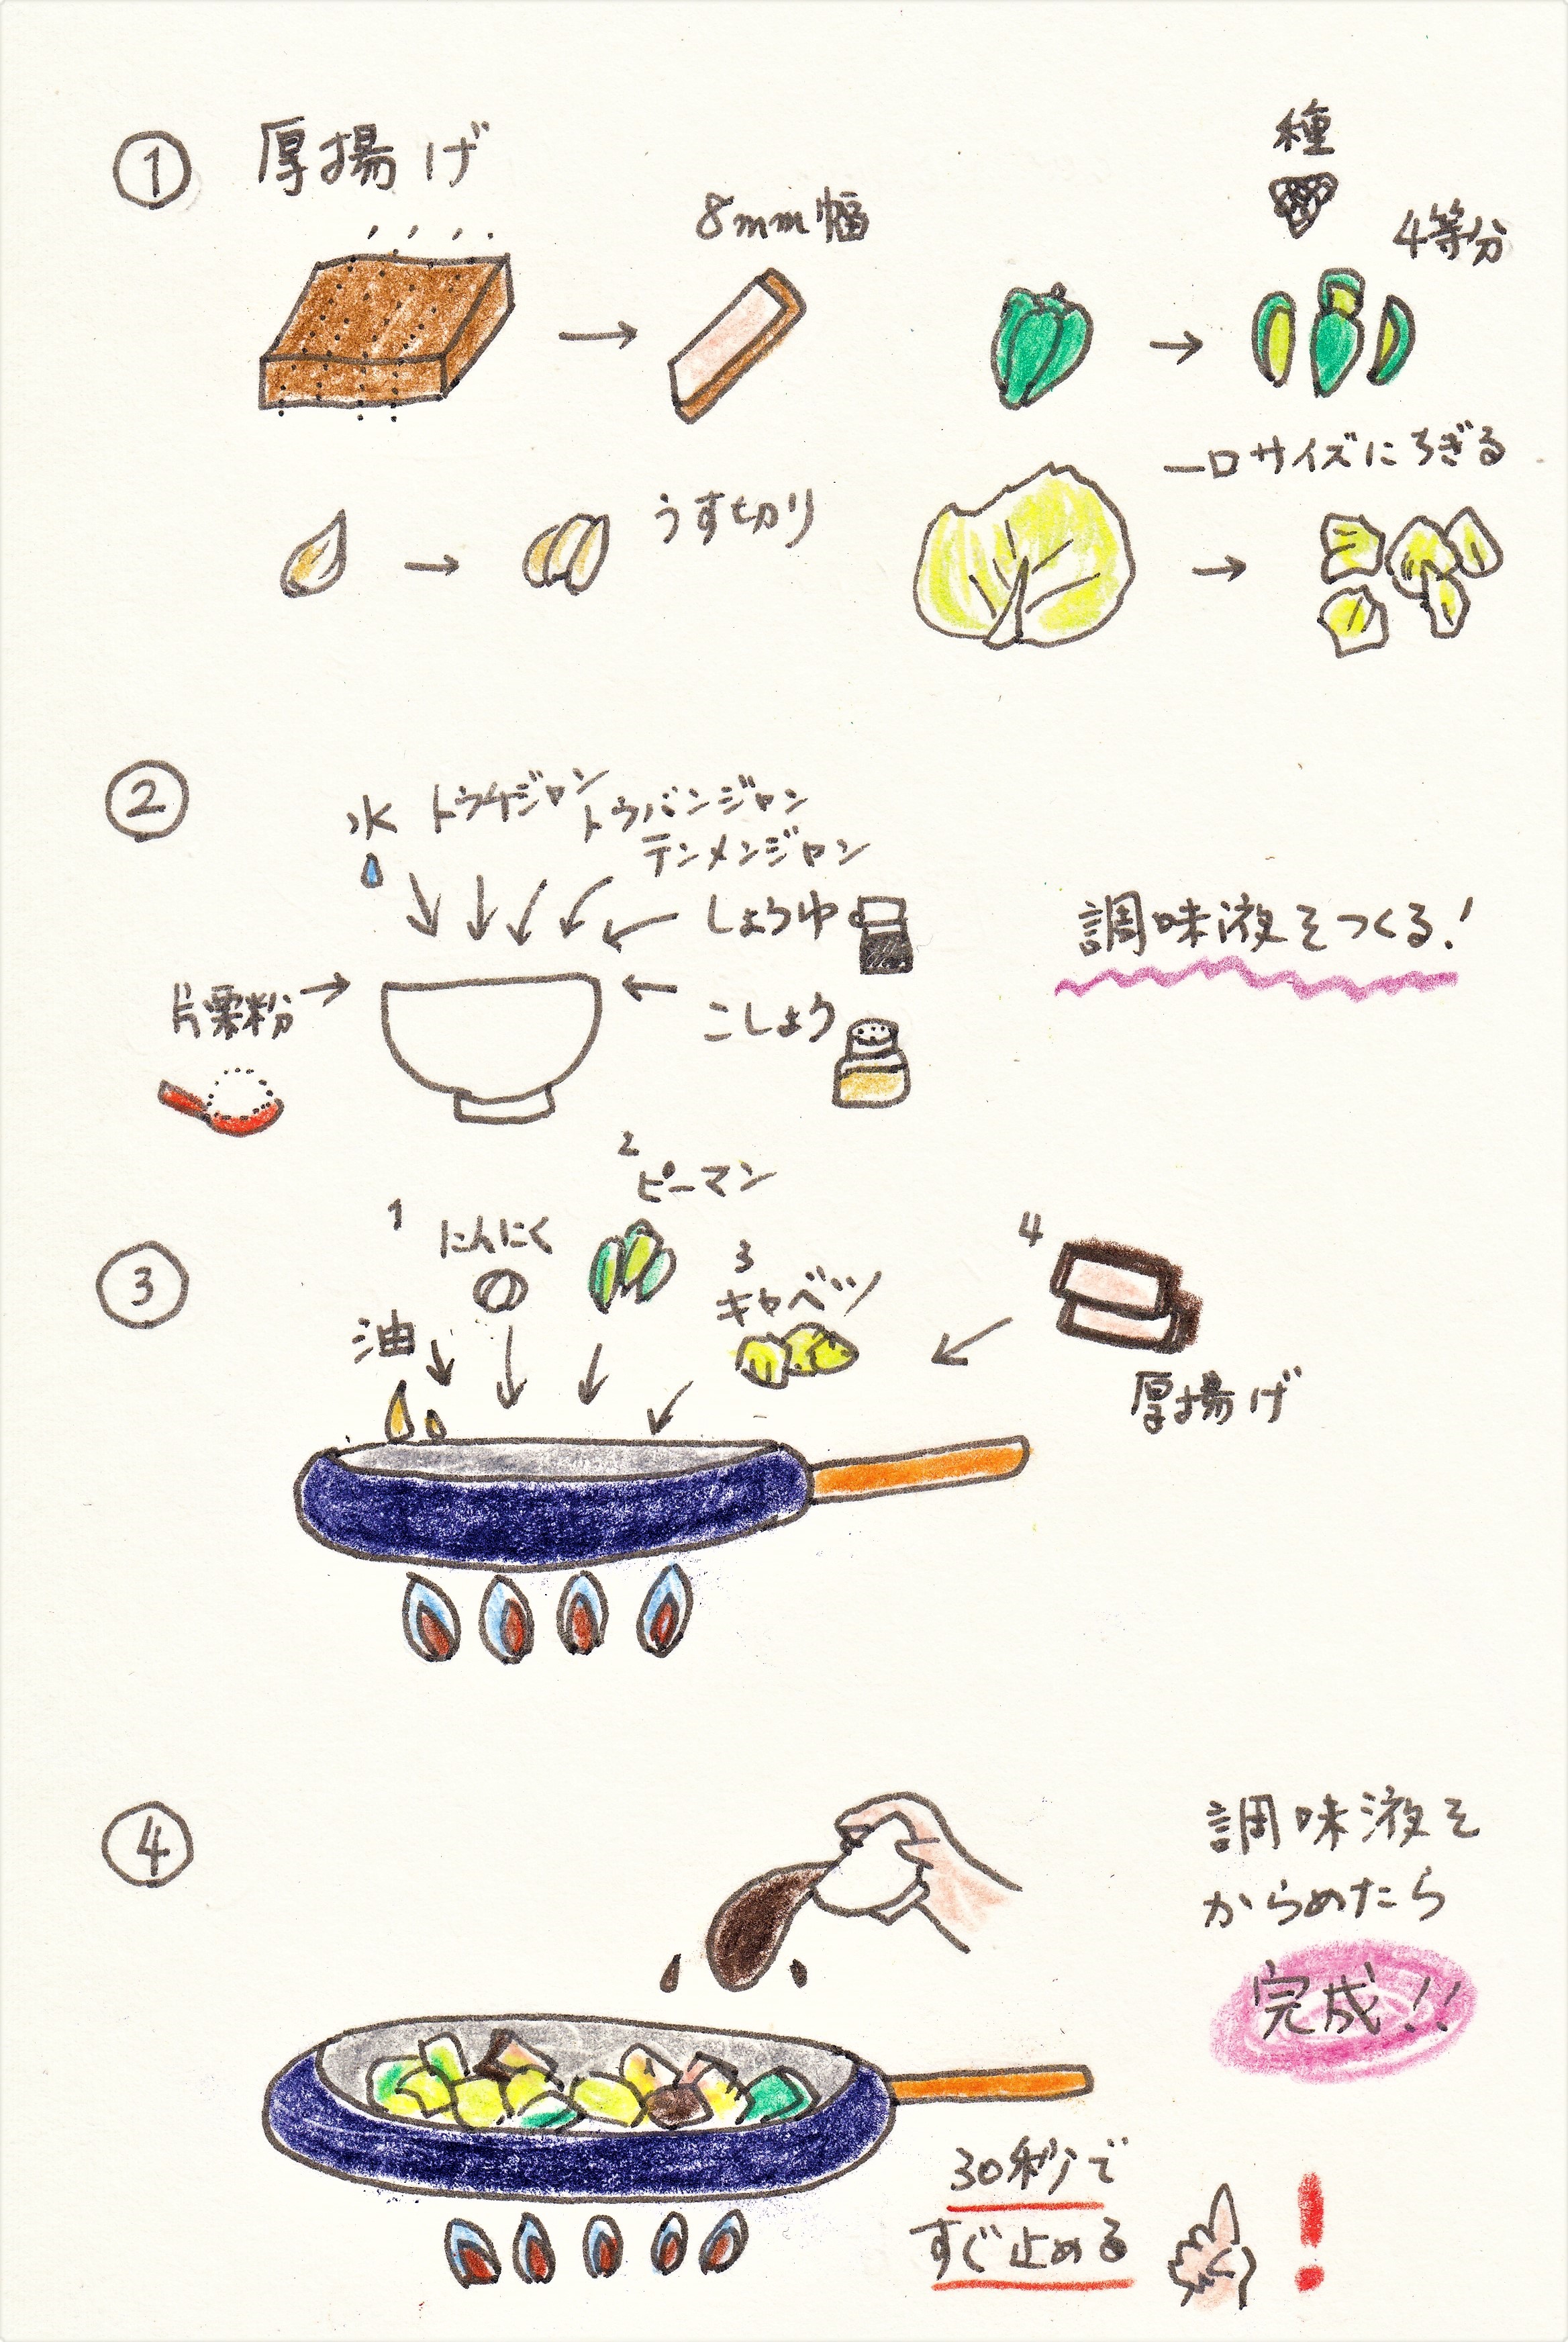 ① 厚揚げ
8mm幅
種
4等分
うす切り
一口サイズにちぎる
②
水
トウチジャン
トウバンジャン
テンメンジャン
しょうゆ
こしょう
片栗粉
調味液をつくる!
③
油
1
にんにく
2
ピーマン
3
キャベツ
4
厚揚げ
④
調味液を
からめたら
完成!!
30秒で
すぐ止める
!